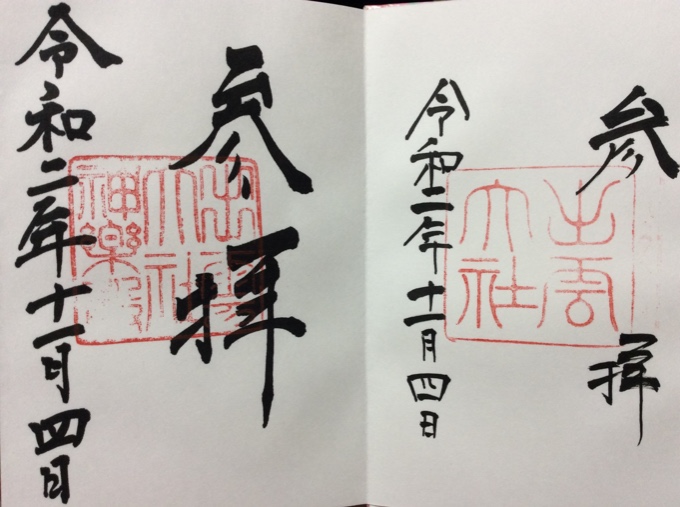 参拝
出雲
大社
令和二年十一月四日
参拝
出雲
大社
神楽殿
令和二年十一月四日